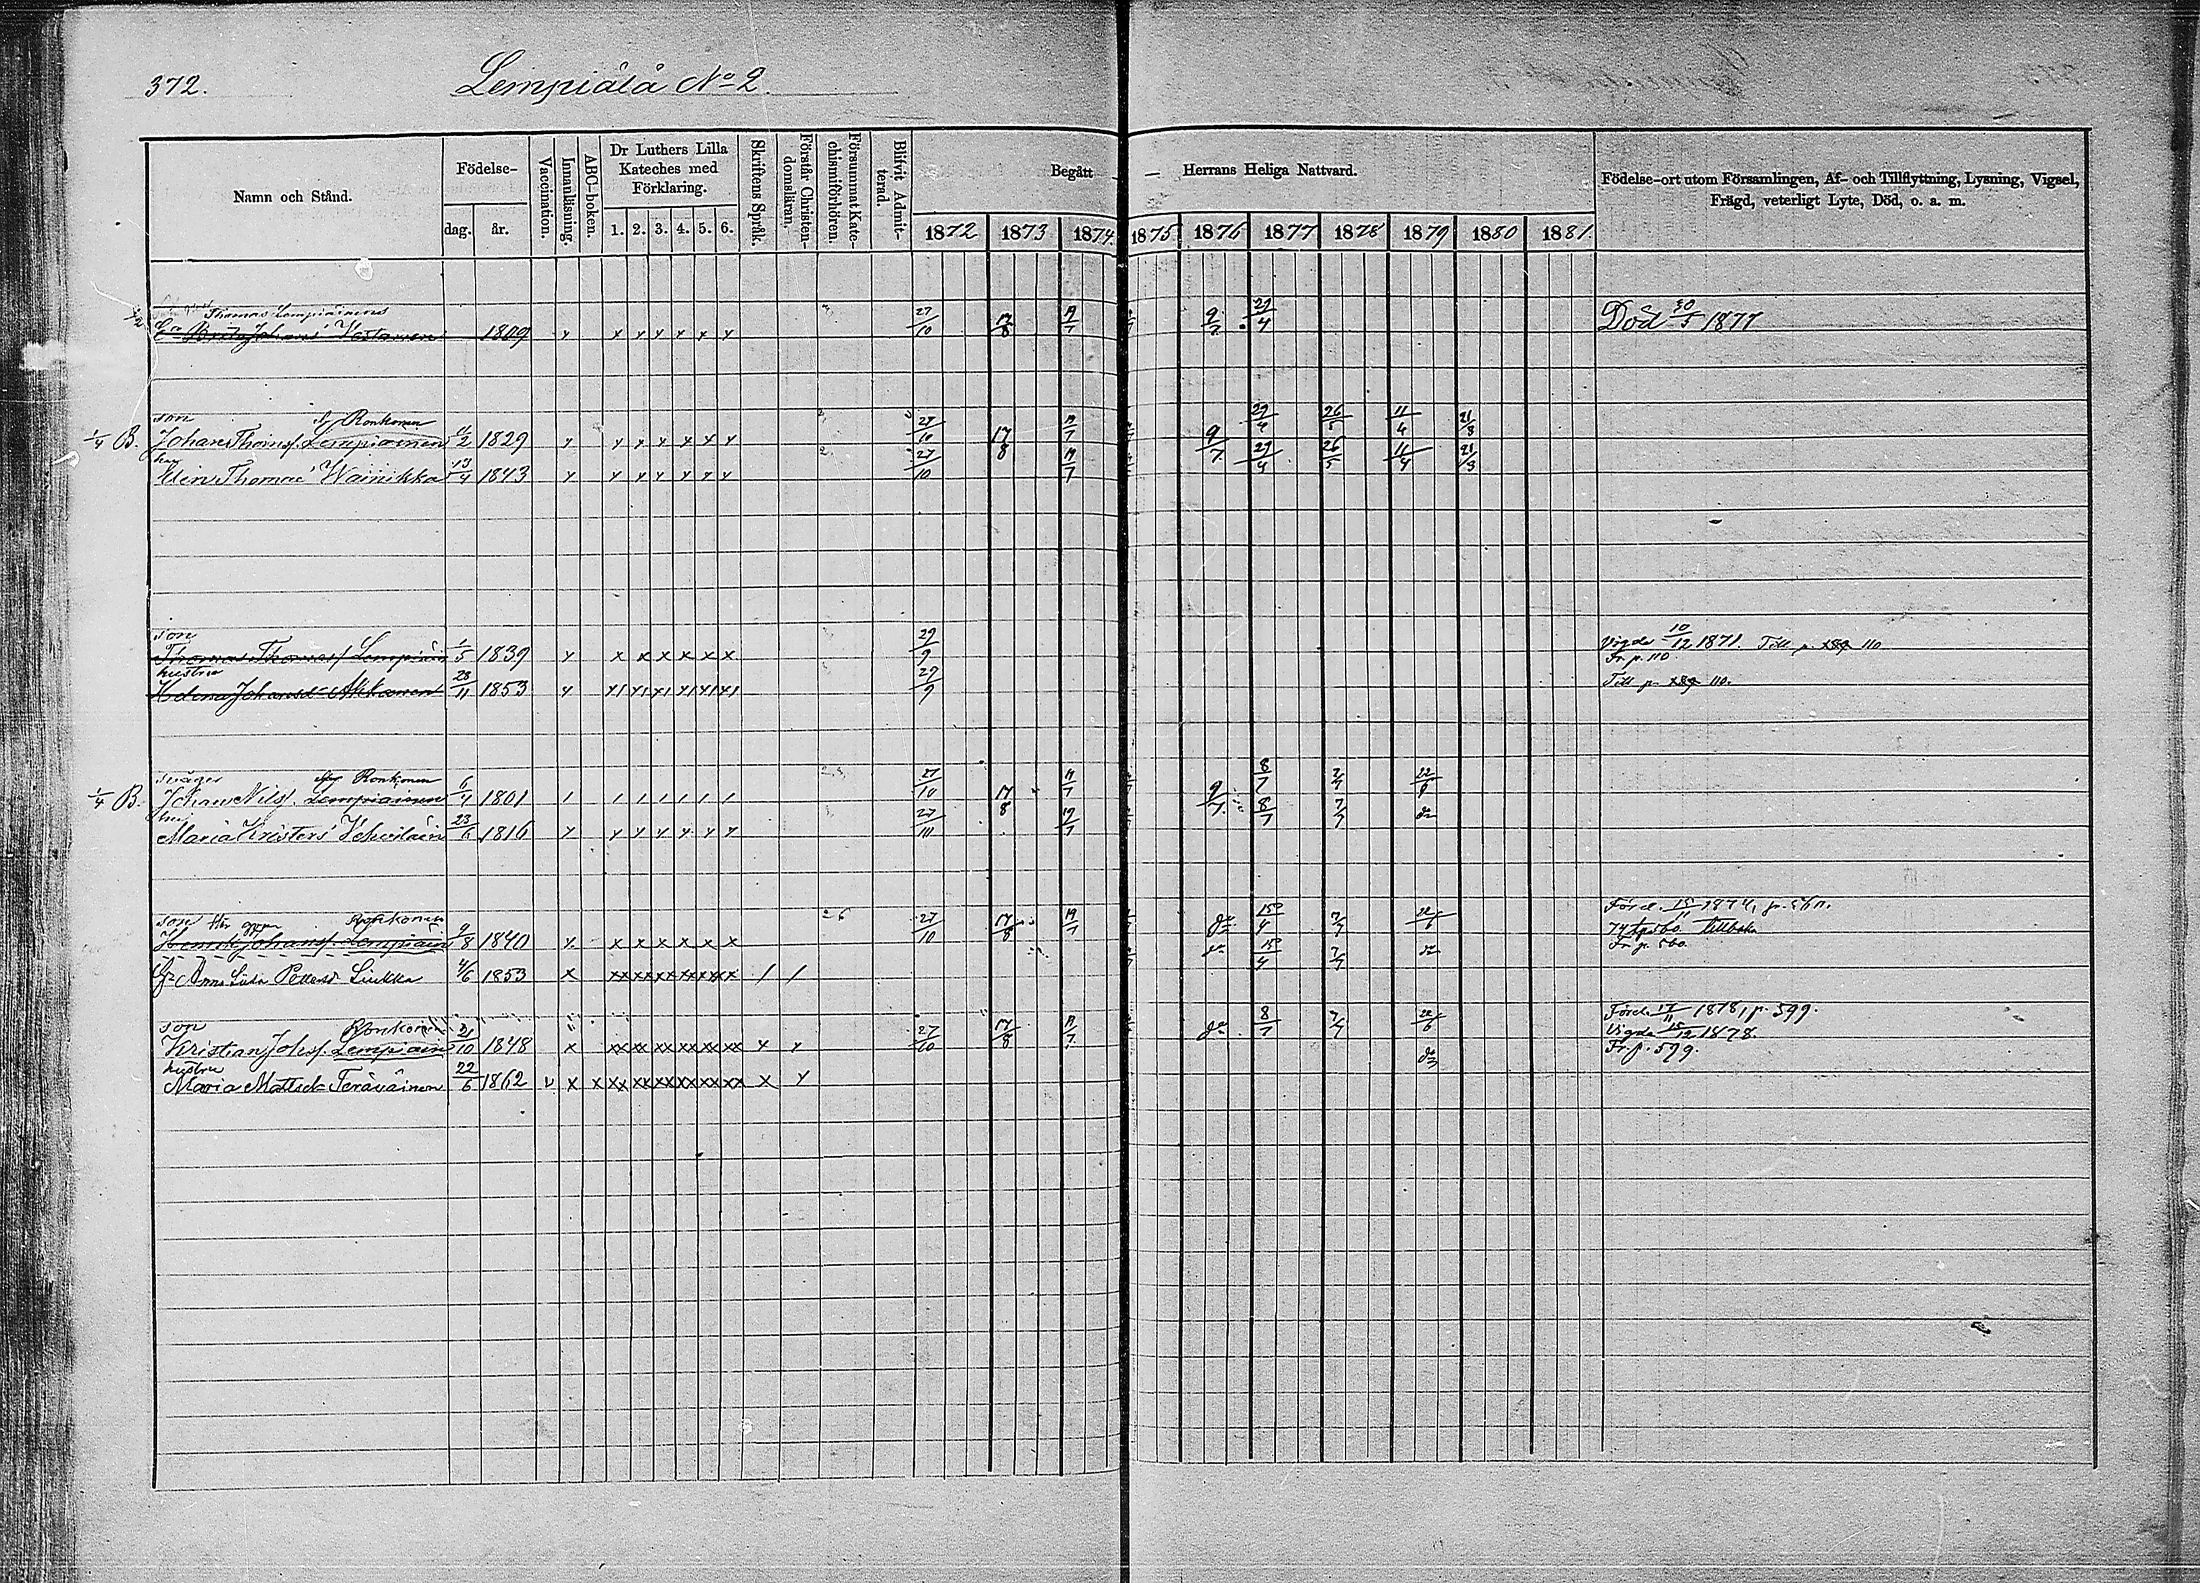 372. Lempiälä No 2.
Namn och Stånd. Födelse- dag. år. Vaccination. Innanläsning. ABC-boken. Dr Luthers Lilla Kateches med Förklaring. 1. 2. 3. 4. 5. 6. Skriftens Språk. Förstår Christendomsläran. Försummat Katechismiförhören. Blifvit Admitterad. Begått Herrans Heliga Nattvard. 1872 1873 1874 1875 1876 1877 1878 1879 1880 1881
Födelse-ort utom Församlingen, Af- och Tillflyttning, Lysning, Vigsel, Frägd, veterligt Lyte, Död, o. a. m.
Thomas Lempiäinens
1809 27/10 17/8 19/7 9/7 29/4 Död 30/5 1877
son Ronkonen
1/4 B. Johan Thomsf. Lempiäinen 11/2 1829 27/10 17/8 19/7 9/7 29/4 26/5 11/4 21/3
hu
Elin Thomae Wainikka 13/4 1843 27/10 19/7 29/4 26/5 11/4 21/3
son
Thomas Thomasf. Lempiäin 1/5 1839 29/9 Vigda 10/12 1871. Till p. 110
Fr. p. 110
hustru
Helena Johansd. 28/11 1853 29/9 Till p. 110.
Ronkonen
1/4 B. Johan Nilsf. Lempiäinen 6/4 1801 27/10 17/8 19/7 9/7 8/7 7/7 22/6
hu
Maria Kristers 23/6 1816 27/10 19/7 8/7 7/7 do
son Ronkonen
Henrik Johansf. Lempiäin 9/8 1840 27/10 17/8 19/7 do 15/4 7/7 22/6 Förel. 15/11 1874, p. 560.
tillbaka
Fr p. 560
Anna Lisa Pettersd. Liukka 4/6 1853 do 15/4 7/7 do
son Ronkonen
Kristian Johsf. Lempiäin 21/10 1848 27/10 17/8 19/7 do 8/7 7/7 22/6 Förel. 17/11 1878, p. 599.
Vigda 15/12 1878.
hustru
Maria Mattsd. Teräväinen 22/6 1862 do Fr. p. 599.